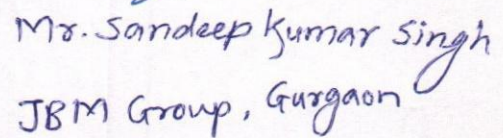 Mr. Sandeep Kumar Singh
JBM Group, Gurgaon